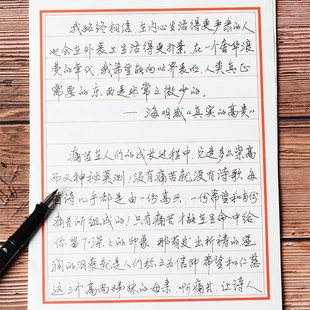 我始终相信 在内心生活得更严肃的人
也会在外表上生活得更朴素 在一个奢华浪
费的年代 我希望能向世界表明 人类真正
需要的东西是非常之微少的。
——海明威《真实的高贵》
痛苦在人们的成长过程中，它是多么崇高
而又神秘莫测！没有痛苦就没有诗歌 每
首诗几乎都是由一份高兴 一份希望和两份
痛苦所组成的！只有痛苦才能在生命中给
你留下深深的印象 那萌发出祈祷的湿
润的泪痕就是人们称之为信仰 希望和仁慈
这三个高尚姊妹的母亲 啊痛苦 让诗人